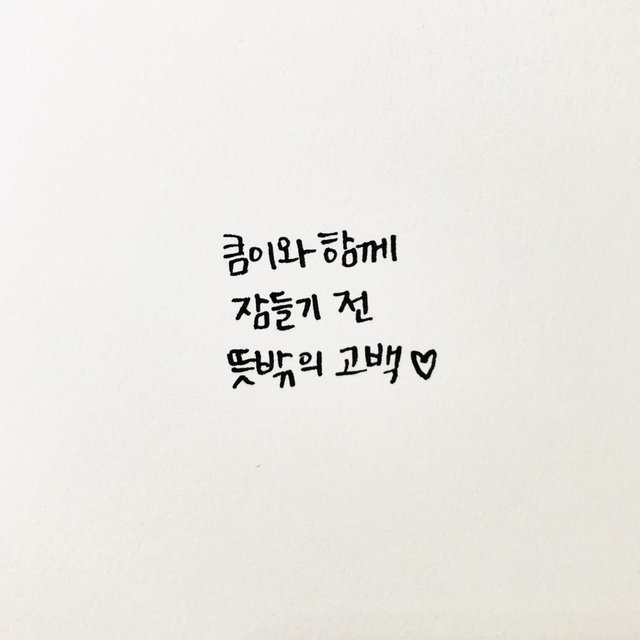 쿰이와 함께
잠들기 전
뜻밖의 고백♡